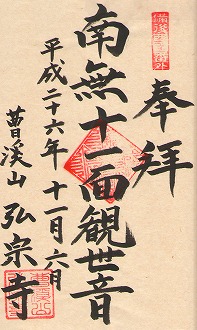 奉拝
南無十一面観世音
平成二十六年十一月六日
曹溪山 弘宗寺